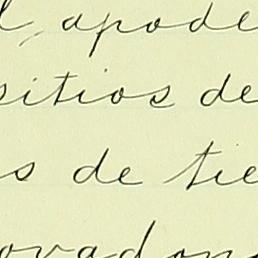 l, apode
sitios de
s de tie
ovadon